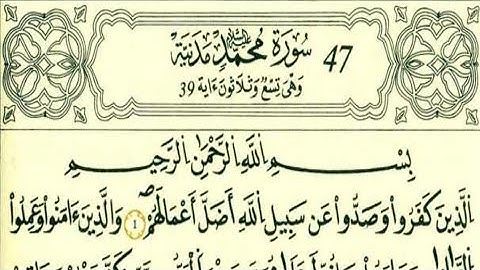 47 سُورَةُ مُحَمَّدٍ ﷺ مَدَنِيَّة
وَهْيَ تِسْعٌ وَثَلَاثُونَ ءَايَة 39
بِسْمِ اِللَّهِ اِلرَّحْمَٰنِ اِلرَّحِيمِ
اِلذِينَ كَفَرُواْ وَصَدُّواْ عَن سَبِيلِ اِللَّهِ أَضَلَّ أَعْمَٰلَهُمْۖ 1 وَالذِينَ ءَامَنُواْ وَعَمِلُواْ